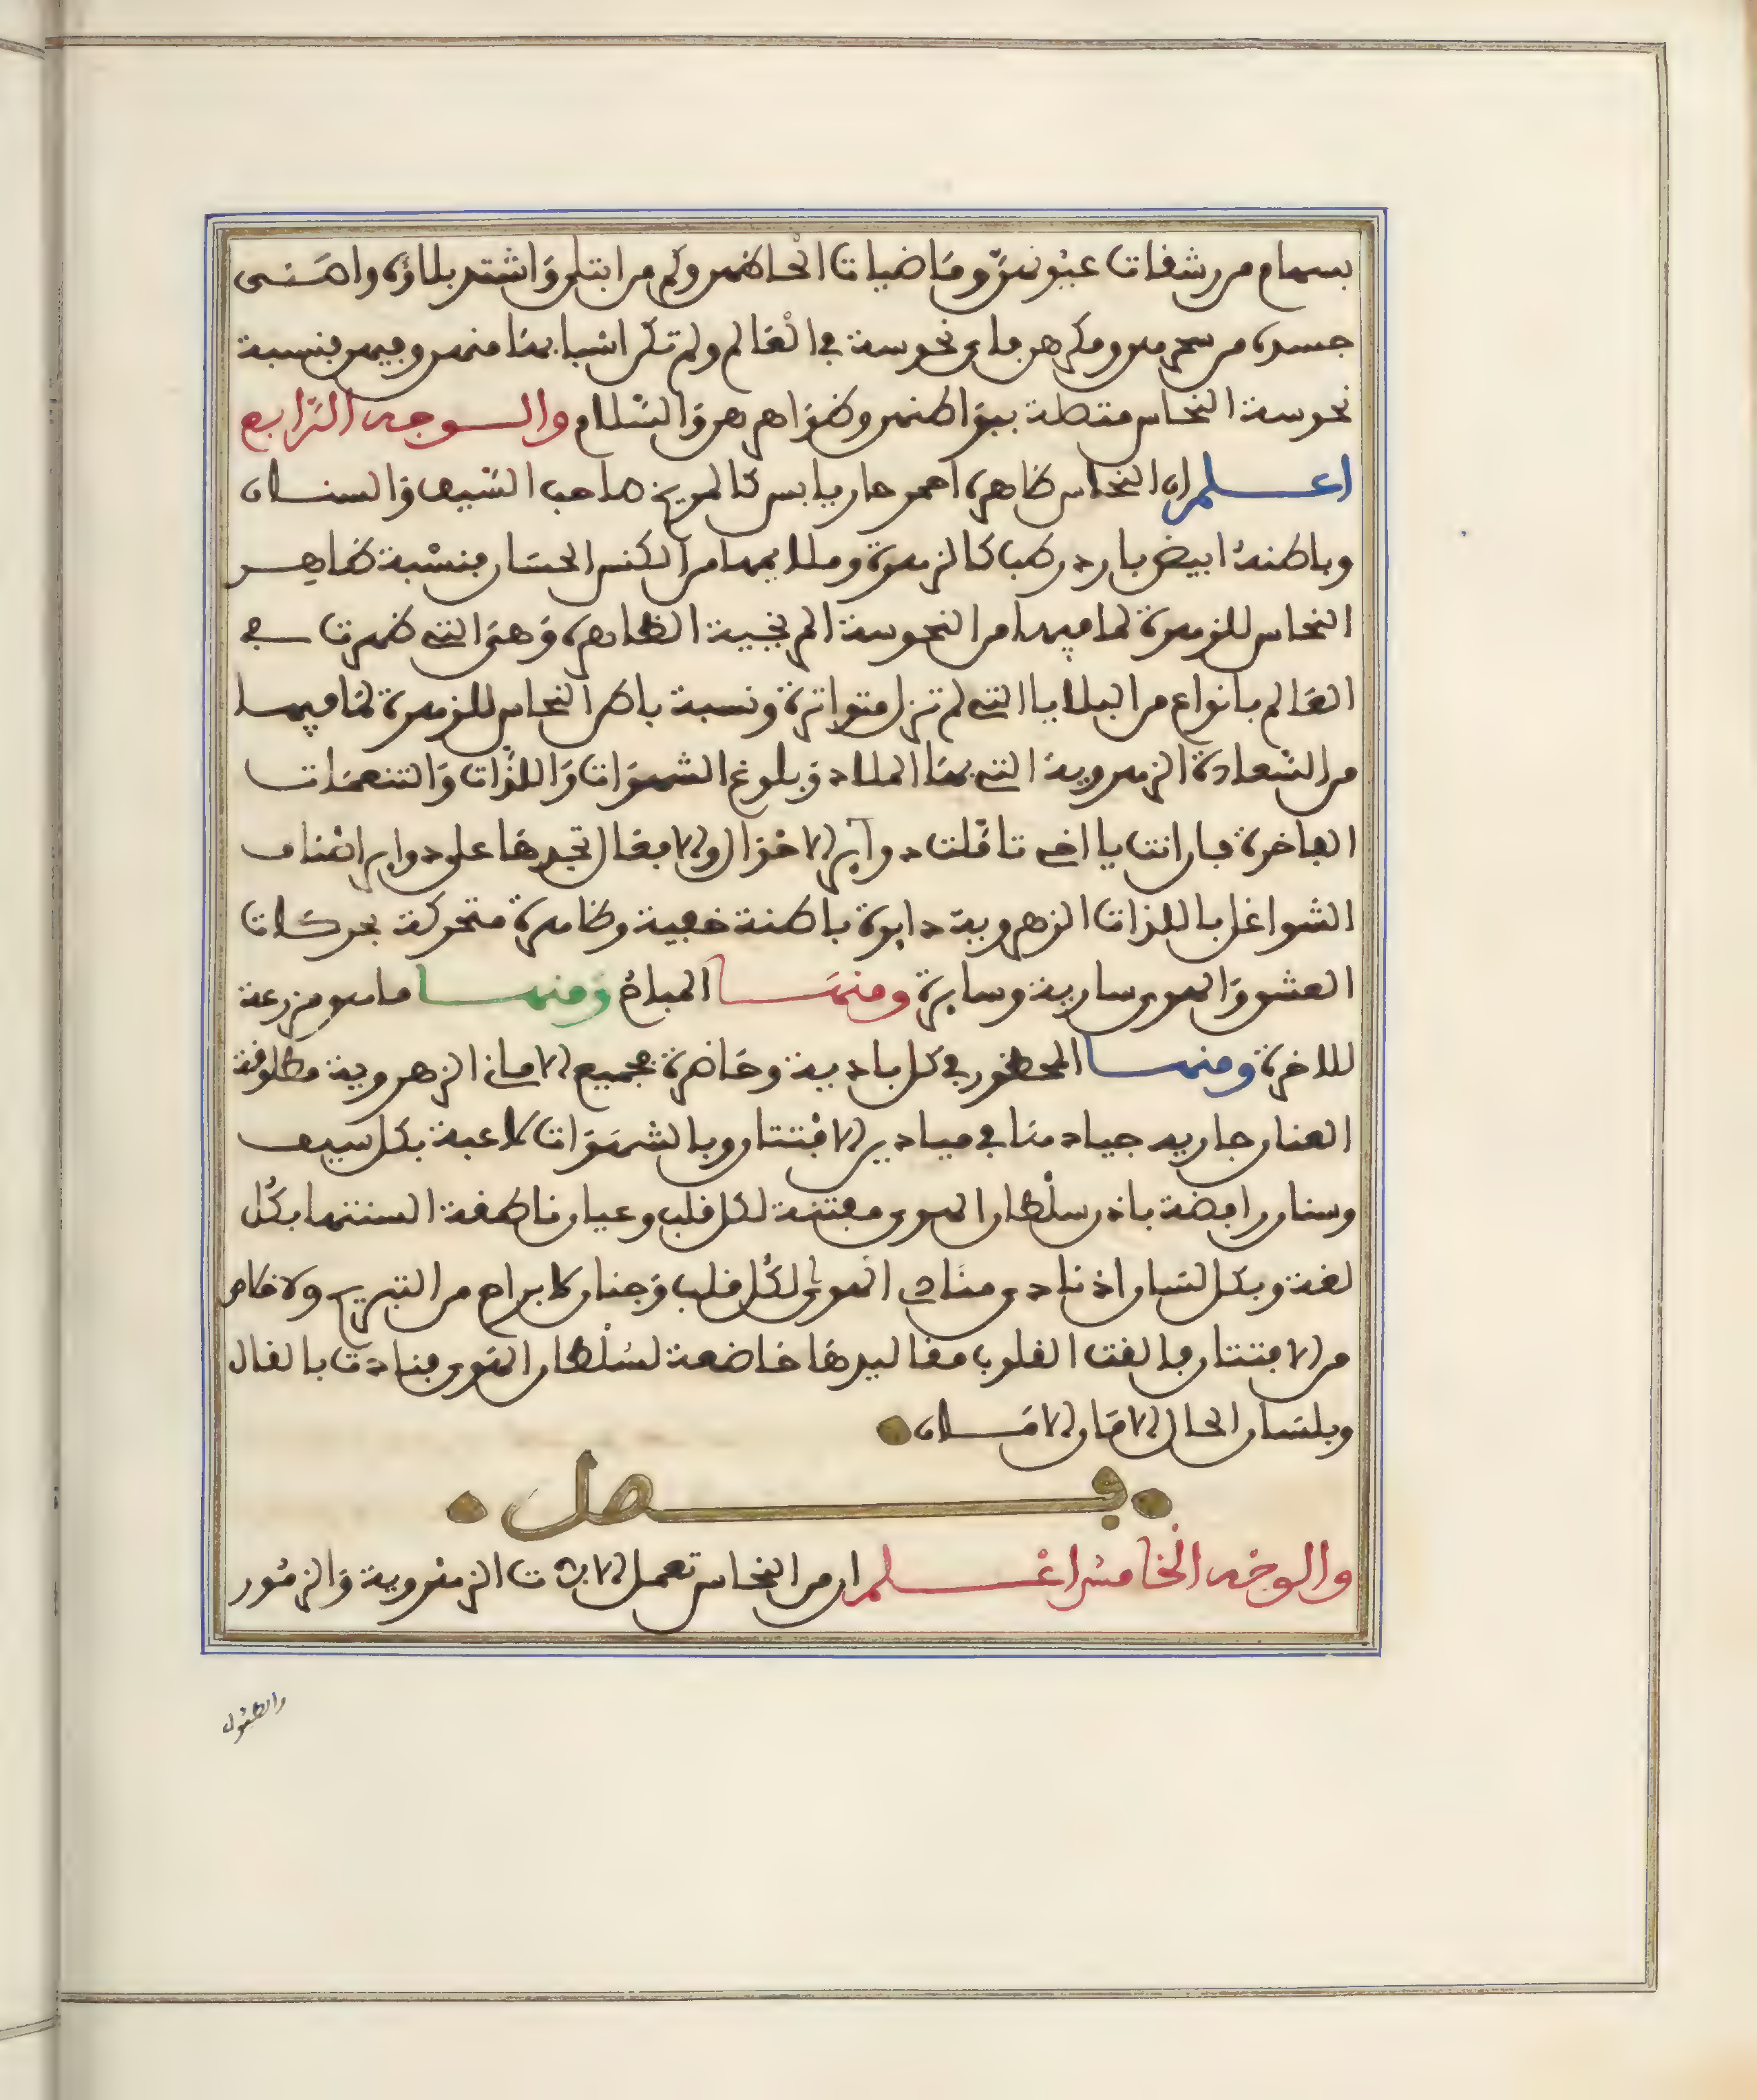 بسهام من رشفات عيونهنّ وماضيات الحاظهن وكم من ابتلى واشتد بلاؤه واضنى
جسده من سحرهن ومكرهن فاى نحوسة في العالم ولم تكن اسبابها منهن وفيهن فنسبة
نحوسة النحاس متصلة ببواطنهن وظواهرهن والسّلام والوجه الرّابع
اعلم ان النحاس ظاهره احمر حار يابس كالمريخ صاحب السّيف والسنان
وباطنهُ ابيض بارد رطب كالزهرة وملايمها من الكنس الحسَان فنسْبة ظاهر
النحاس للزهرة لما فيها من النحوسة المريخية الظاهرة وَهىَ التي ظهرت في
العَالم بانواع من البلايا التي لم تزل متواترة ونسبة باطن النحاس للزهرة لمَا فيها
من السّعادة الزهروية التي بهَا الملاذ وَبلوغ الشهوَات وَاللذّات وَالتنعمَات
الفاخرة فان انت يا اخي تاملت دواير الاحوال والافعال تجدها على دواير اصْناف
الشواغل باللذات الزهروية دايرة باطنة خفية وظاهرة متحركة بحركات
العشق وَالهوى سارية وسايرة ومنهَا المباحُ وَمنها ما هو مزرعة
للاخرة ومنها المحظور في كل بادية وحَاضرة فجميع الاماني الزهروية مطلوقة
العنان جارية جيادهَا في ميادين الافتتان وبالشهَوَات لاعبة بكل سيف
وسنان راقصة باذن سلْطان الهوى مفتنة لكل قلب وعيان ناطقة السنتها بكُل
لغة وبكل لسَان اذ نادى منَادي الهوى لكُل قلب وَجنان لا براح من التبريح ولا خلاص
من الافتتان فالقت القلوب مقاليدهَا خاضعة لسُلْطان الهَوى فنادت بالقال
وبلسَان الحال الامَان الامَان
فصل
والوجْه الخامسُ اعْلم ان من النحاس تعمل الالات الزهْروية وَالزمُور
والطبُول